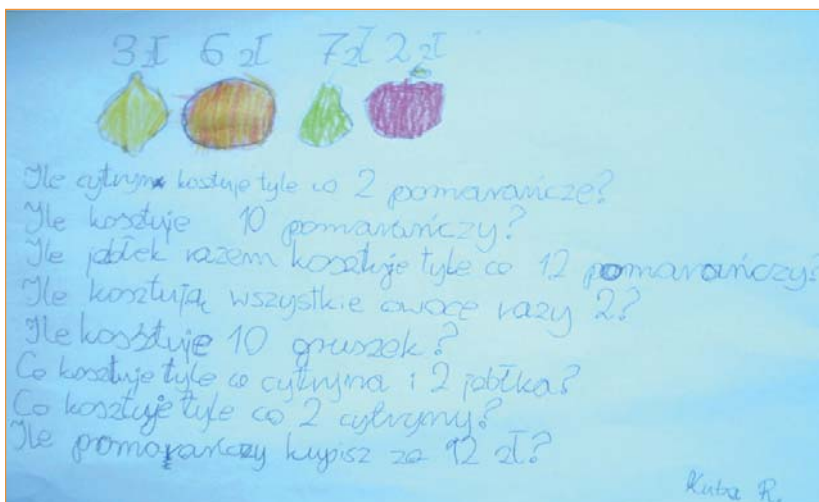 3 zł 6 zł 7 zł 2 zł
Ile cytryn kosztuje tyle co 2 pomarańcze?
Ile kosztuje 10 pomarańczy?
Ile jabłek razem kosztuje tyle co 12 pomarańczy?
Ile kosztują wszystkie owoce razy 2?
Ile kosztuje 10 gruszek?
Co kosztuje tyle co cytryna i 2 jabłka?
Co kosztuje tyle co 2 cytryny?
Ile pomarańczy kupisz za 12 zł?
Kuba R.